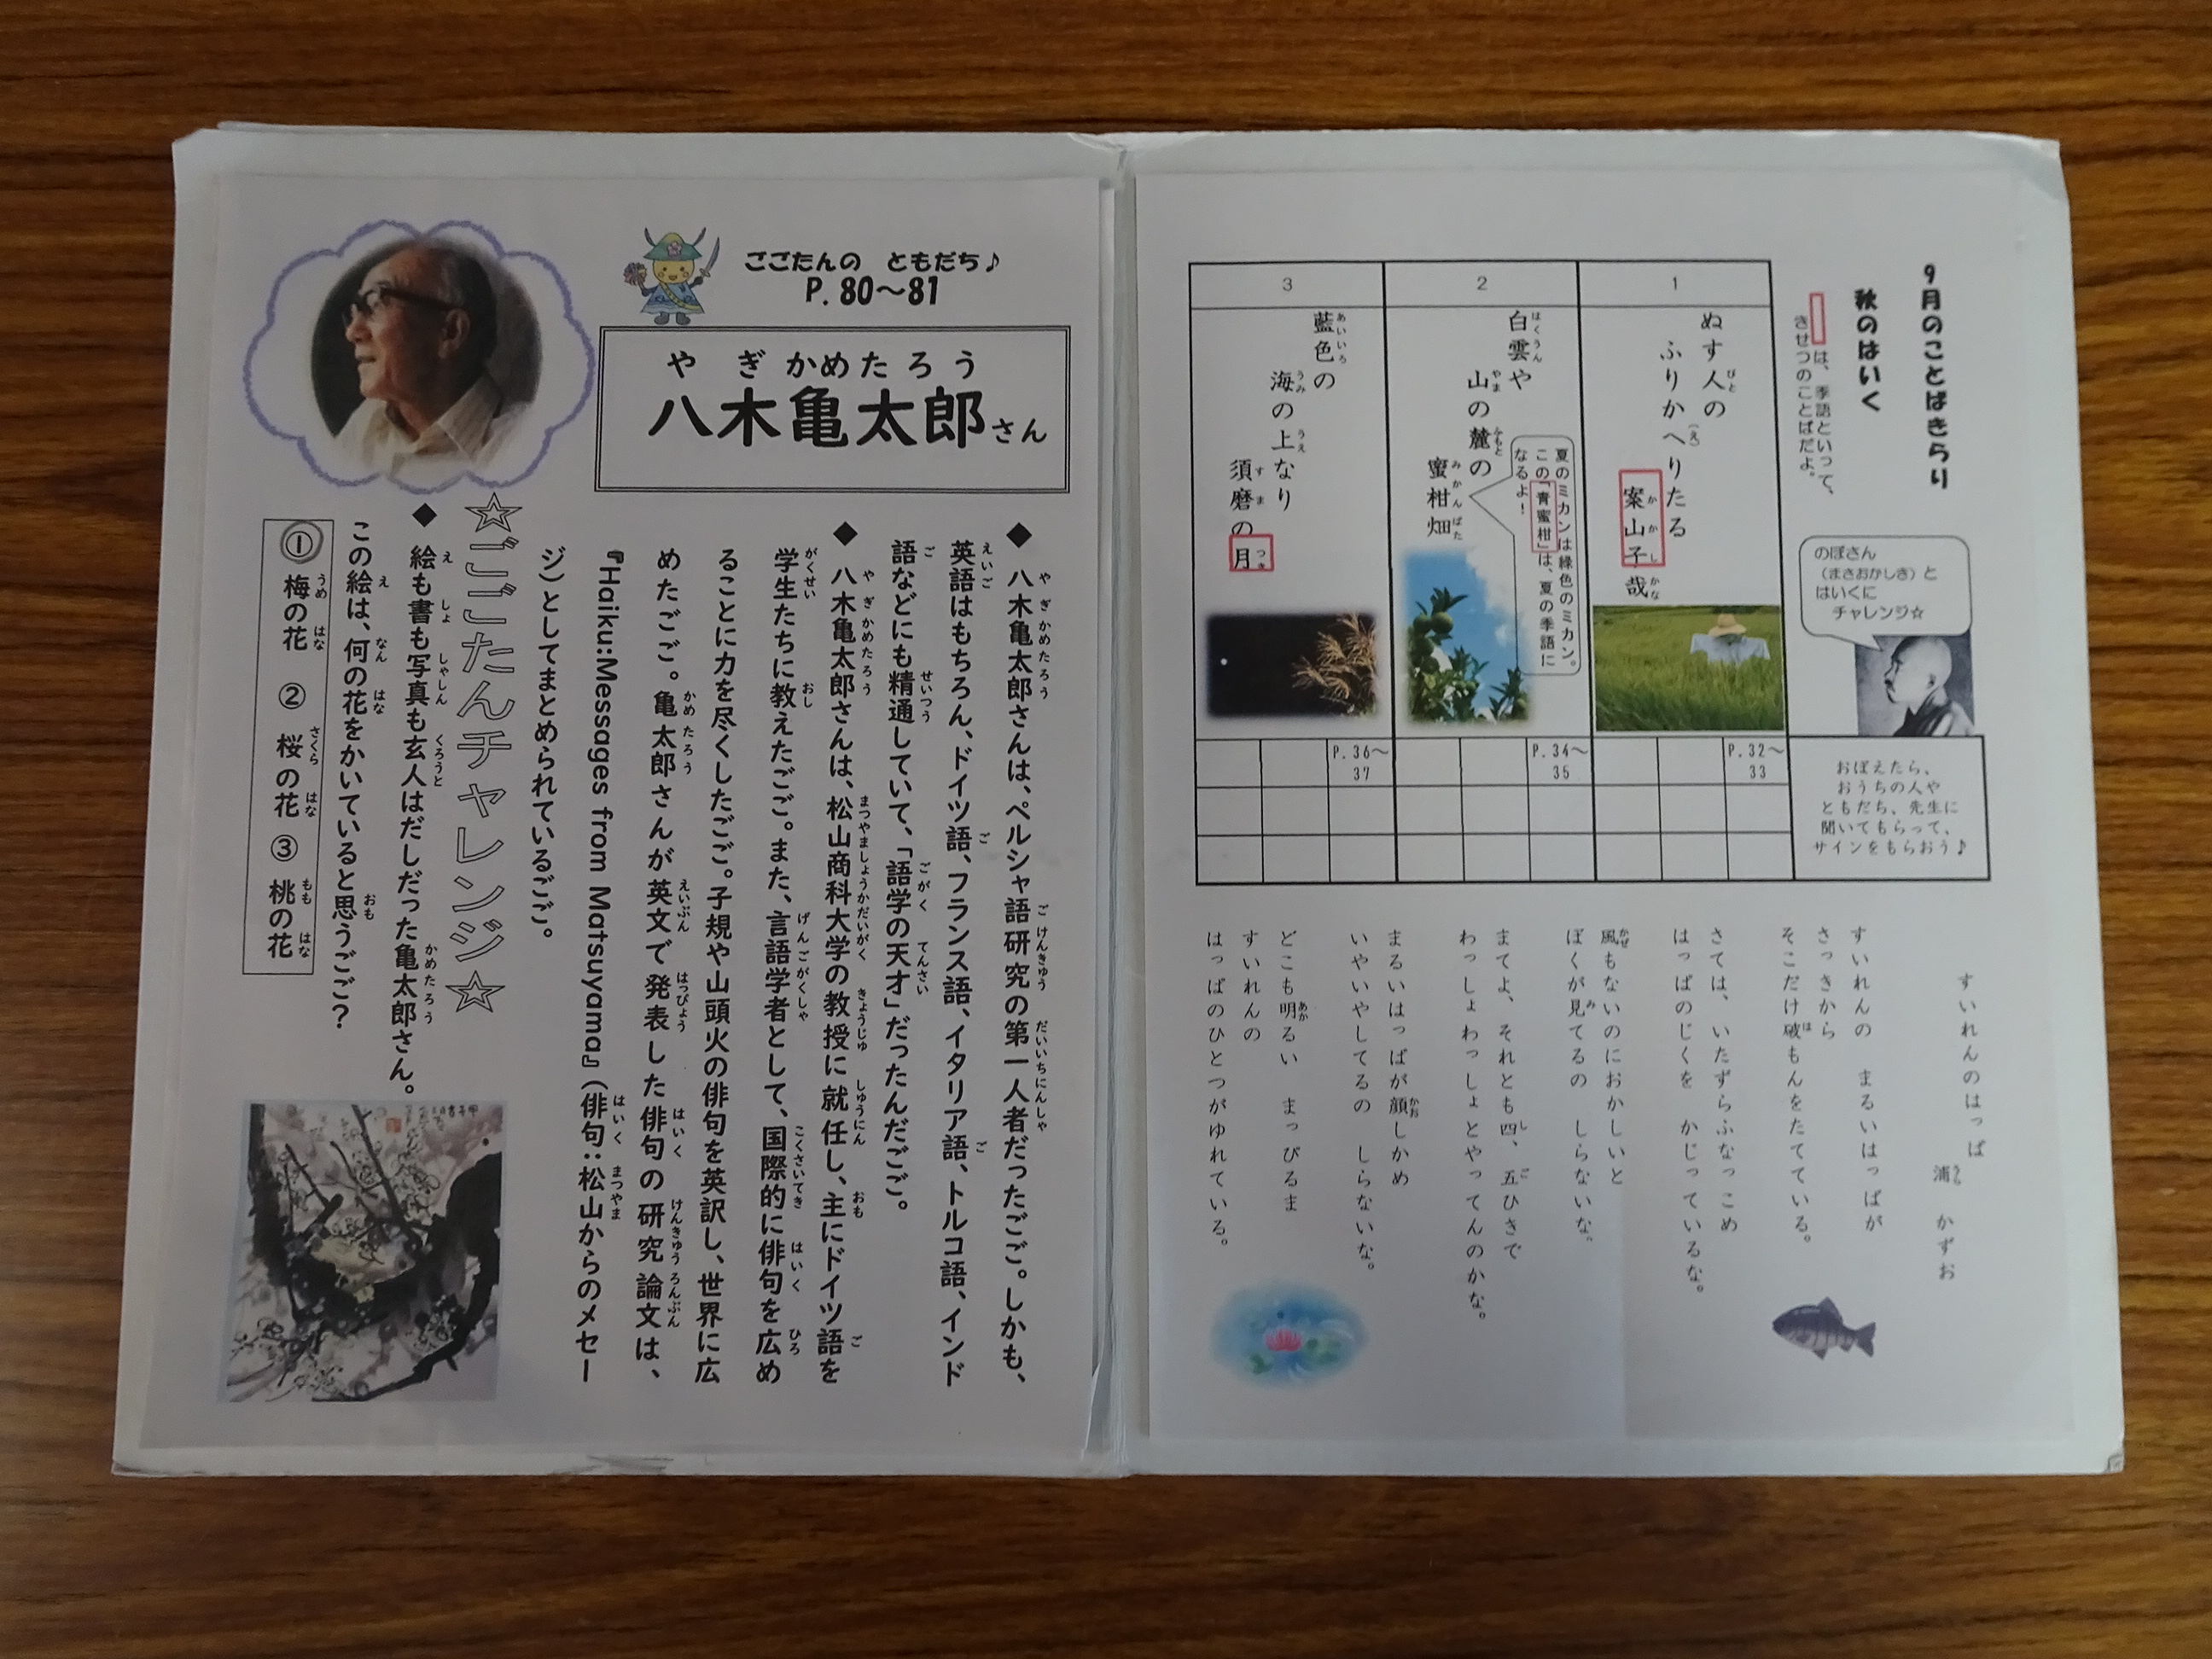 9月のことばきらり
秋のはいく
は、季語といって、
きせつのことばだよ。
のぼさん
（まさおかしき）と
はいくに
チャレンジ☆
1
ぬす人の
ふりかへりたる
案山子哉
2
白雲や
山の麓の
蜜柑畑
夏のミカンは緑色のミカン。
この「青蜜柑」は、夏の季語に
なるよ！
3
藍色の
海の上なり
須磨の月
おぼえたら、
おうちの人や
ともだち、先生に
聞いてもらって、
サインをもらおう♪
P.32～
33
P.34～
35
P.36～
37
すいれんのはっぱ
浦 かずお
すいれんの まるいはっぱが
さっきから
そこだけ破もんをたてている。
さては、いたずらふなっこめ
はっぱのじくを かじっているな。
風もないのにおかしいと
ぼくが見てるの しらないな。
まてよ、それとも四、五ひきで
わっしょわっしょとやってんのかな。
まるいはっぱが顔しかめ
いやいやしてるの しらないな。
どこも明るい まっぴるま
すいれんの
はっぱのひとつがゆれている。
ごごたんの ともだち♪
P.80～81
やぎかめたろう
八木亀太郎さん
◆八木亀太郎さんは、ペルシャ語研究の第一人者だったごご。しかも、
英語はもちろん、ドイツ語、フランス語、イタリア語、トルコ語、インド
語などにも精通していて、「語学の天才」だったんだごご。
◆八木亀太郎さんは、松山商科大学の教授に就任し、主にドイツ語を
学生たちに教えたごご。また、言語学者として、国際的に俳句を広め
ることに力を尽くしたごご。子規や山頭火の俳句を英訳し、世界に広
めたごご。亀太郎さんが英文で発表した俳句の研究論文は、
『Haiku:Messages from Matsuyama』（俳句：松山からのメセー
ジ）としてまとめられているごご。
☆ごごたんチャレンジ☆
◆絵も書も写真も玄人はだしだった亀太郎さん。
この絵は、何の花をかいていると思うごご？
① 梅の花 ② 桜の花 ③ 桃の花